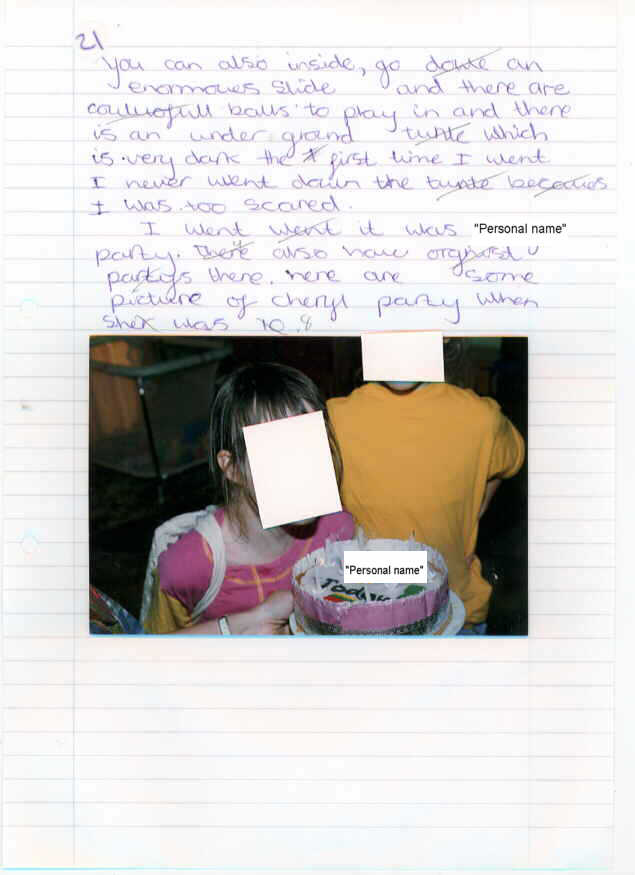 21
You can also inside, go donte an
enormoues Slide and there are
coulourfull balls to play in and there
is an under ground tunte which
is very dark the first time I went
I never went down the tunte becaeues
I was too scared.
I went went it was "Personal name"
party. There also have orginast
partys there. here are some
picture of cheryl party when
she was 10. 8
"Personal name"
Today